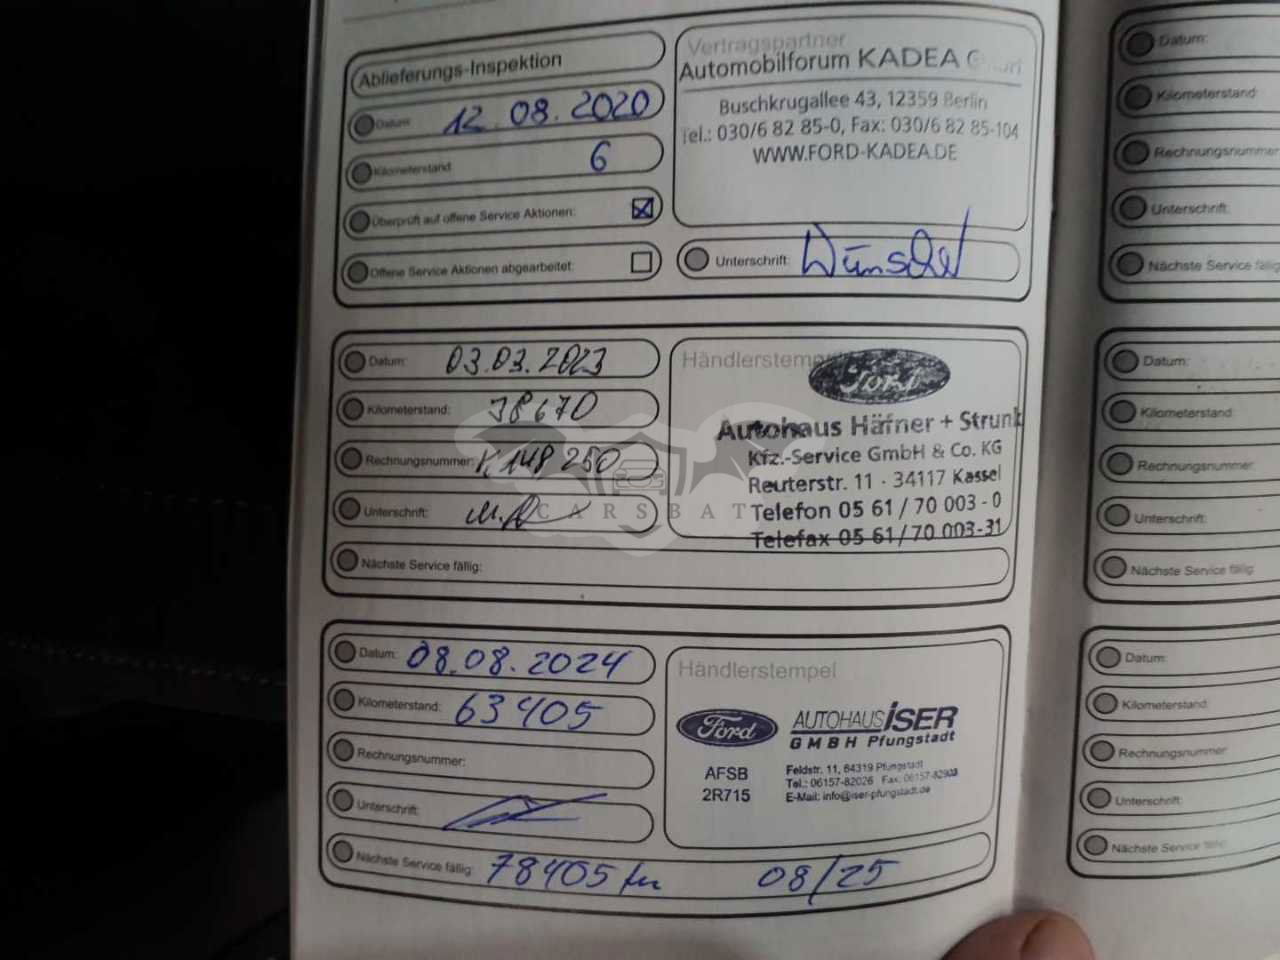 Ablieferungs-Inspektion
Datum: 12.08.2020
Kilometerstand 6
Überprüft auf offene Service Aktionen:
Offene Service Aktionen abgearbeitet:
Vertragspartner
Automobilforum KADEA
Buschkrugallee 43, 12359 Berlin
Tel.: 030/6 82 85-0, Fax: 030/6 82 85-104
WWW.FORD-KADEA.DE
Unterschrift:
Datum: 03.03.2023
Kilometerstand: 38670
Rechnungsnummer: 148250
Unterschrift:
Nächste Service fällig:
Händlerstempel
Ford
Autohaus Häfner + Strunk
Kfz.-Service GmbH & Co. KG
Reuterstr. 11 - 34117 Kassel
Telefon 05 61 / 70 003 - 0
Telefax 05 61 / 70 003-31
CARSBAT
Datum: 08.08.2024
Kilometerstand: 63405
Rechnungsnummer:
Unterschrift:
Nächste Service fällig: 78405 km 08/25
Händlerstempel
Ford
AFSB
2R715
AUTOHAUS ISER
GMBH Pfungstadt
Feldstr. 11, 64319 Pfungstadt
Tel.: 06157-82026 Fax: 06157-82908
E-Mail: info@iser-pfungstadt.de
Datum:
Kilometerstand:
Rechnungsnummer
Unterschrift:
Nächste Service fällig
Datum:
Kilometerstand:
Rechnungsnummer:
Unterschrift:
Nächste Service fällig:
Datum:
Kilometerstand:
Rechnungsnummer:
Unterschrift:
Nächste Service fällig